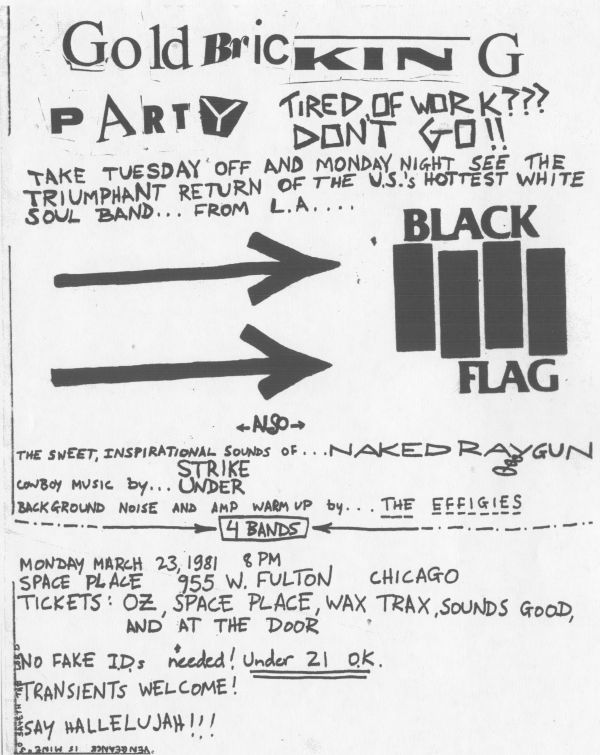 Gold BricKING
PARTY
TIRED OF WORK???
DON'T GO!!
TAKE TUESDAY OFF AND MONDAY NIGHT SEE THE
TRIUMPHANT RETURN OF THE U.S.'s HOTTEST WHITE
SOUL BAND... FROM L.A....
BLACK
FLAG
←ALSO→
THE SWEET, INSPIRATIONAL SOUNDS OF...NAKED RAYGUN
COWBOY MUSIC by... STRIKE UNDER
BACKGROUND NOISE AND AMP WARM UP by... THE EFFIGIES
4 BANDS
MONDAY MARCH 23, 1981 8 PM
SPACE PLACE 955 W. FULTON CHICAGO
TICKETS: OZ, SPACE PLACE, WAX TRAX, SOUNDS GOOD,
AND AT THE DOOR
NO FAKE I.D.s needed! Under 21 O.K.
TRANSIENTS WELCOME!
SAY HALLELUJAH!!!
VENGEANCE IS MINE
SAYETH THE LORD